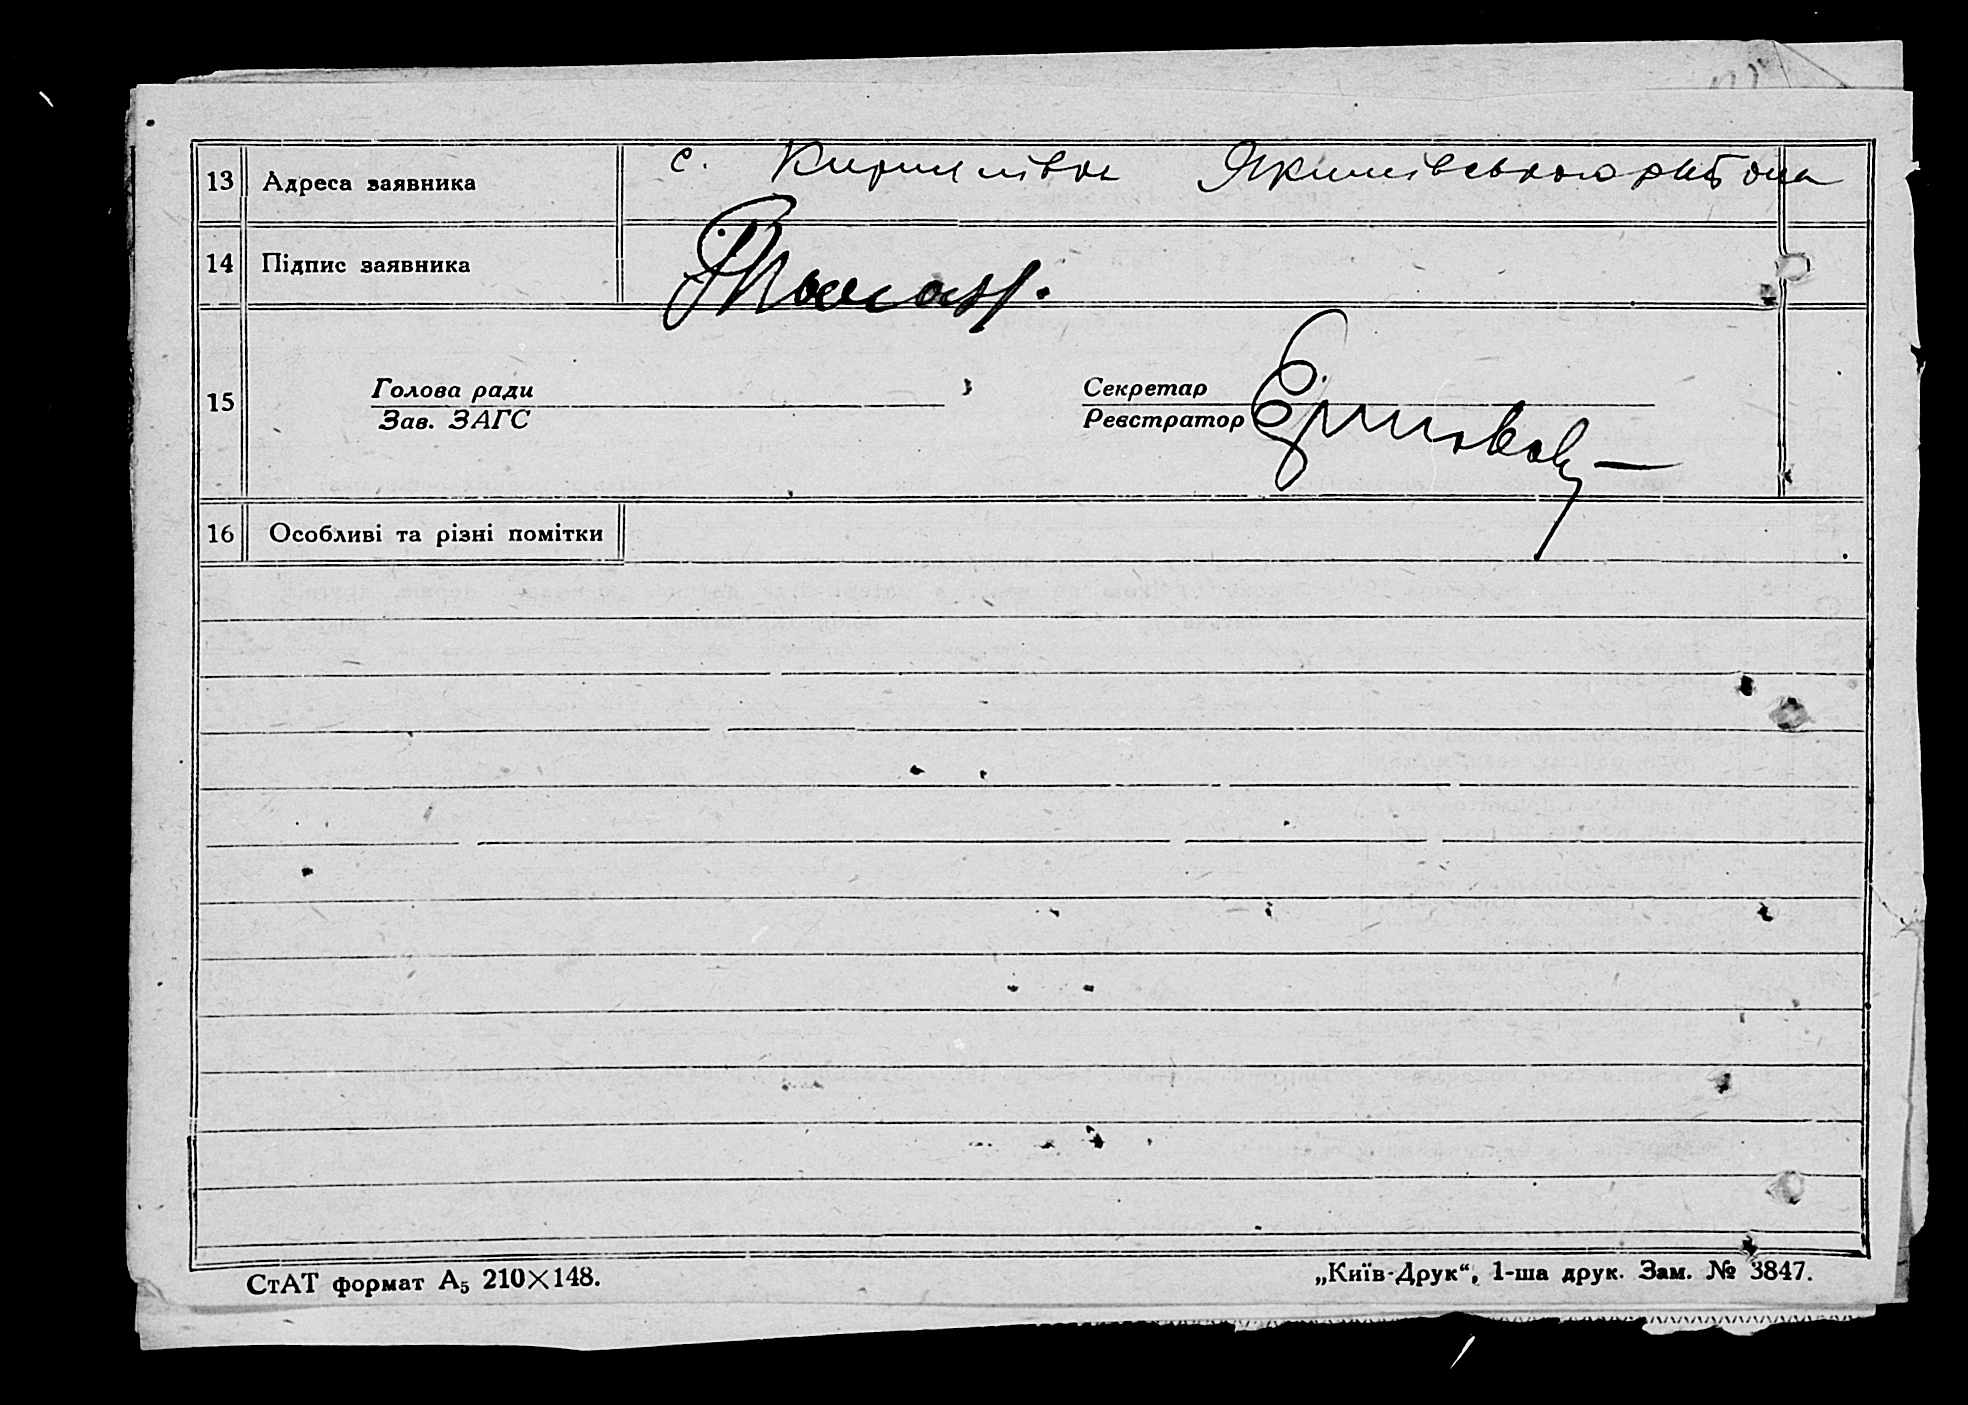 13 Адреса заявника с. Кирилівка Якимівського района
14 Підпис заявника
15 Голова ради Секретар
Зав. ЗАГС Реєстратор
16 Особливі та різні помітки
СтАТ формат А5 210×148. „Київ-Друк“, 1-ша друк. Зам. № 3847.